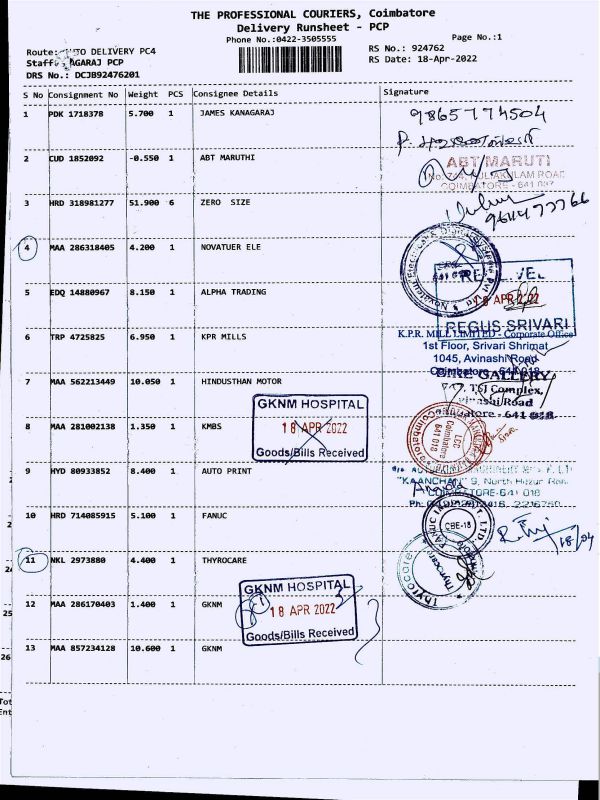 THE PROFESSIONAL COURIERS, Coimbatore
Delivery Runsheet - PCP
Phone No.:0422-3505555
Page No.:1
Route: AUTO DELIVERY PC4
RS No.: 924762
Staff: AGARAJ PCP
RS Date: 18-Apr-2022
DRS No.: DCJB92476201
S No Consignment No Weight PCS Consignee Details Signature
1 PDK 1718378 5.700 1 JAMES KANAGARAJ
9865774504
2 CUD 1852092 -0.550 1 ABT MARUTHI
ABT MARUTI
COIMBATORE - 641 037
3 HRD 318981277 51.900 6 ZERO SIZE
4 MAA 286318405 4.200 1 NOVATUER ELE
5 EDQ 14880967 8.150 1 ALPHA TRADING
18 APR 2022
REGUS SRIVARI
6 TRP 4725825 6.950 1 KPR MILLS
K.P.R. MILL LIMITED - Corporate Office
1st Floor, Srivari Shrimat
1045, Avinashi Road
Coimbatore - 641 018
7 MAA 562213449 10.050 1 HINDUSTHAN MOTOR
BIKE GALLERY
TSI Complex,
Avinashi Road
Coimbatore - 641 018
GKNM HOSPITAL
18 APR 2022
Goods/Bills Received
8 MAA 281002138 1.350 1 KMBS
LCC
Coimbatore
641 018
9 HYD 80933852 8.400 1 AUTO PRINT
"KAANCHAN" 9, North Huzur Road
COIMBATORE-641 018
10 HRD 714085915 5.100 1 FANUC
CBE-18
18/04
11 NKL 2973880 4.400 1 THYROCARE
Thyrocare
12 MAA 286170403 1.400 1 GKNM
GKNM HOSPITAL
18 APR 2022
Goods/Bills Received
13 MAA 857234128 10.600 1 GKNM
25
26